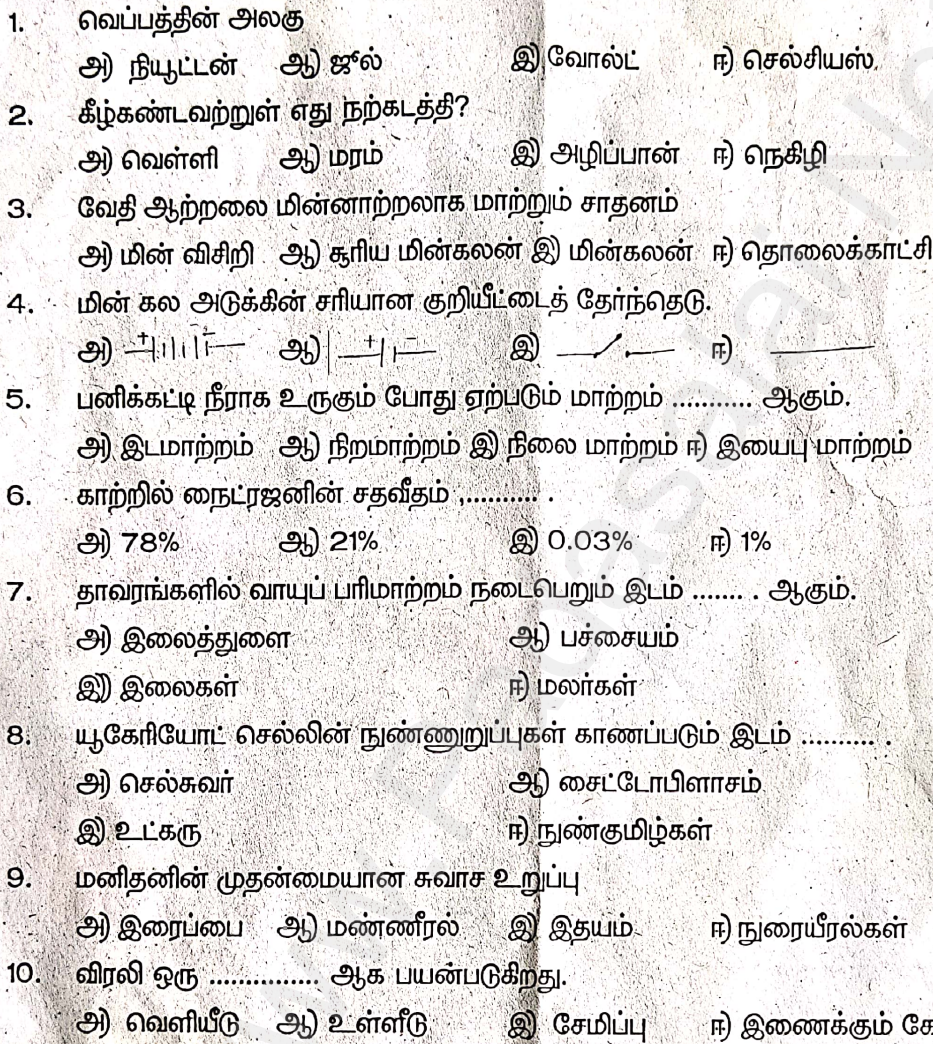 1. வெப்பத்தின் அலகு
அ) நியூட்டன் ஆ) ஜூல் இ) வோல்ட் ஈ) செல்சியஸ்.
2. கீழ்கண்டவற்றுள் எது நற்கடத்தி?
அ) வெள்ளி ஆ) மரம் இ) அழிப்பான் ஈ) நெகிழி
3. வேதி ஆற்றலை மின்னாற்றலாக மாற்றும் சாதனம்
அ) மின் விசிறி ஆ) சூரிய மின்கலன் இ) மின்கலன் ஈ) தொலைக்காட்சி
4. மின் கல அடுக்கின் சரியான குறியீட்டைத் தேர்ந்தெடு.
அ) ஆ) இ) ஈ)
5. பனிக்கட்டி நீராக உருகும் போது ஏற்படும் மாற்றம் ........... ஆகும்.
அ) இடமாற்றம் ஆ) நிறமாற்றம் இ) நிலை மாற்றம் ஈ) இயைபு மாற்றம்
6. காற்றில் நைட்ரஜனின் சதவீதம் ,.......... .
அ) 78% ஆ) 21% இ) 0.03% ஈ) 1%
7. தாவரங்களில் வாயுப் பரிமாற்றம் நடைபெறும் இடம் ....... . ஆகும்.
அ) இலைத்துளை ஆ) பச்சையம்
இ) இலைகள் ஈ) மலர்கள்
8. யூகேரியோட் செல்லின் நுண்ணுறுப்புகள் காணப்படும் இடம் .......... .
அ) செல்சுவர் ஆ) சைட்டோபிளாசம்
இ) உட்கரு ஈ) நுண்குமிழ்கள்
9. மனிதனின் முதன்மையான சுவாச உறுப்பு
அ) இரைப்பை ஆ) மண்ணீரல் இ) இதயம் ஈ) நுரையீரல்கள்
10. விரலி ஒரு .............. ஆக பயன்படுகிறது.
அ) வெளியீடு ஆ) உள்ளீடு இ) சேமிப்பு ஈ) இணைக்கும்